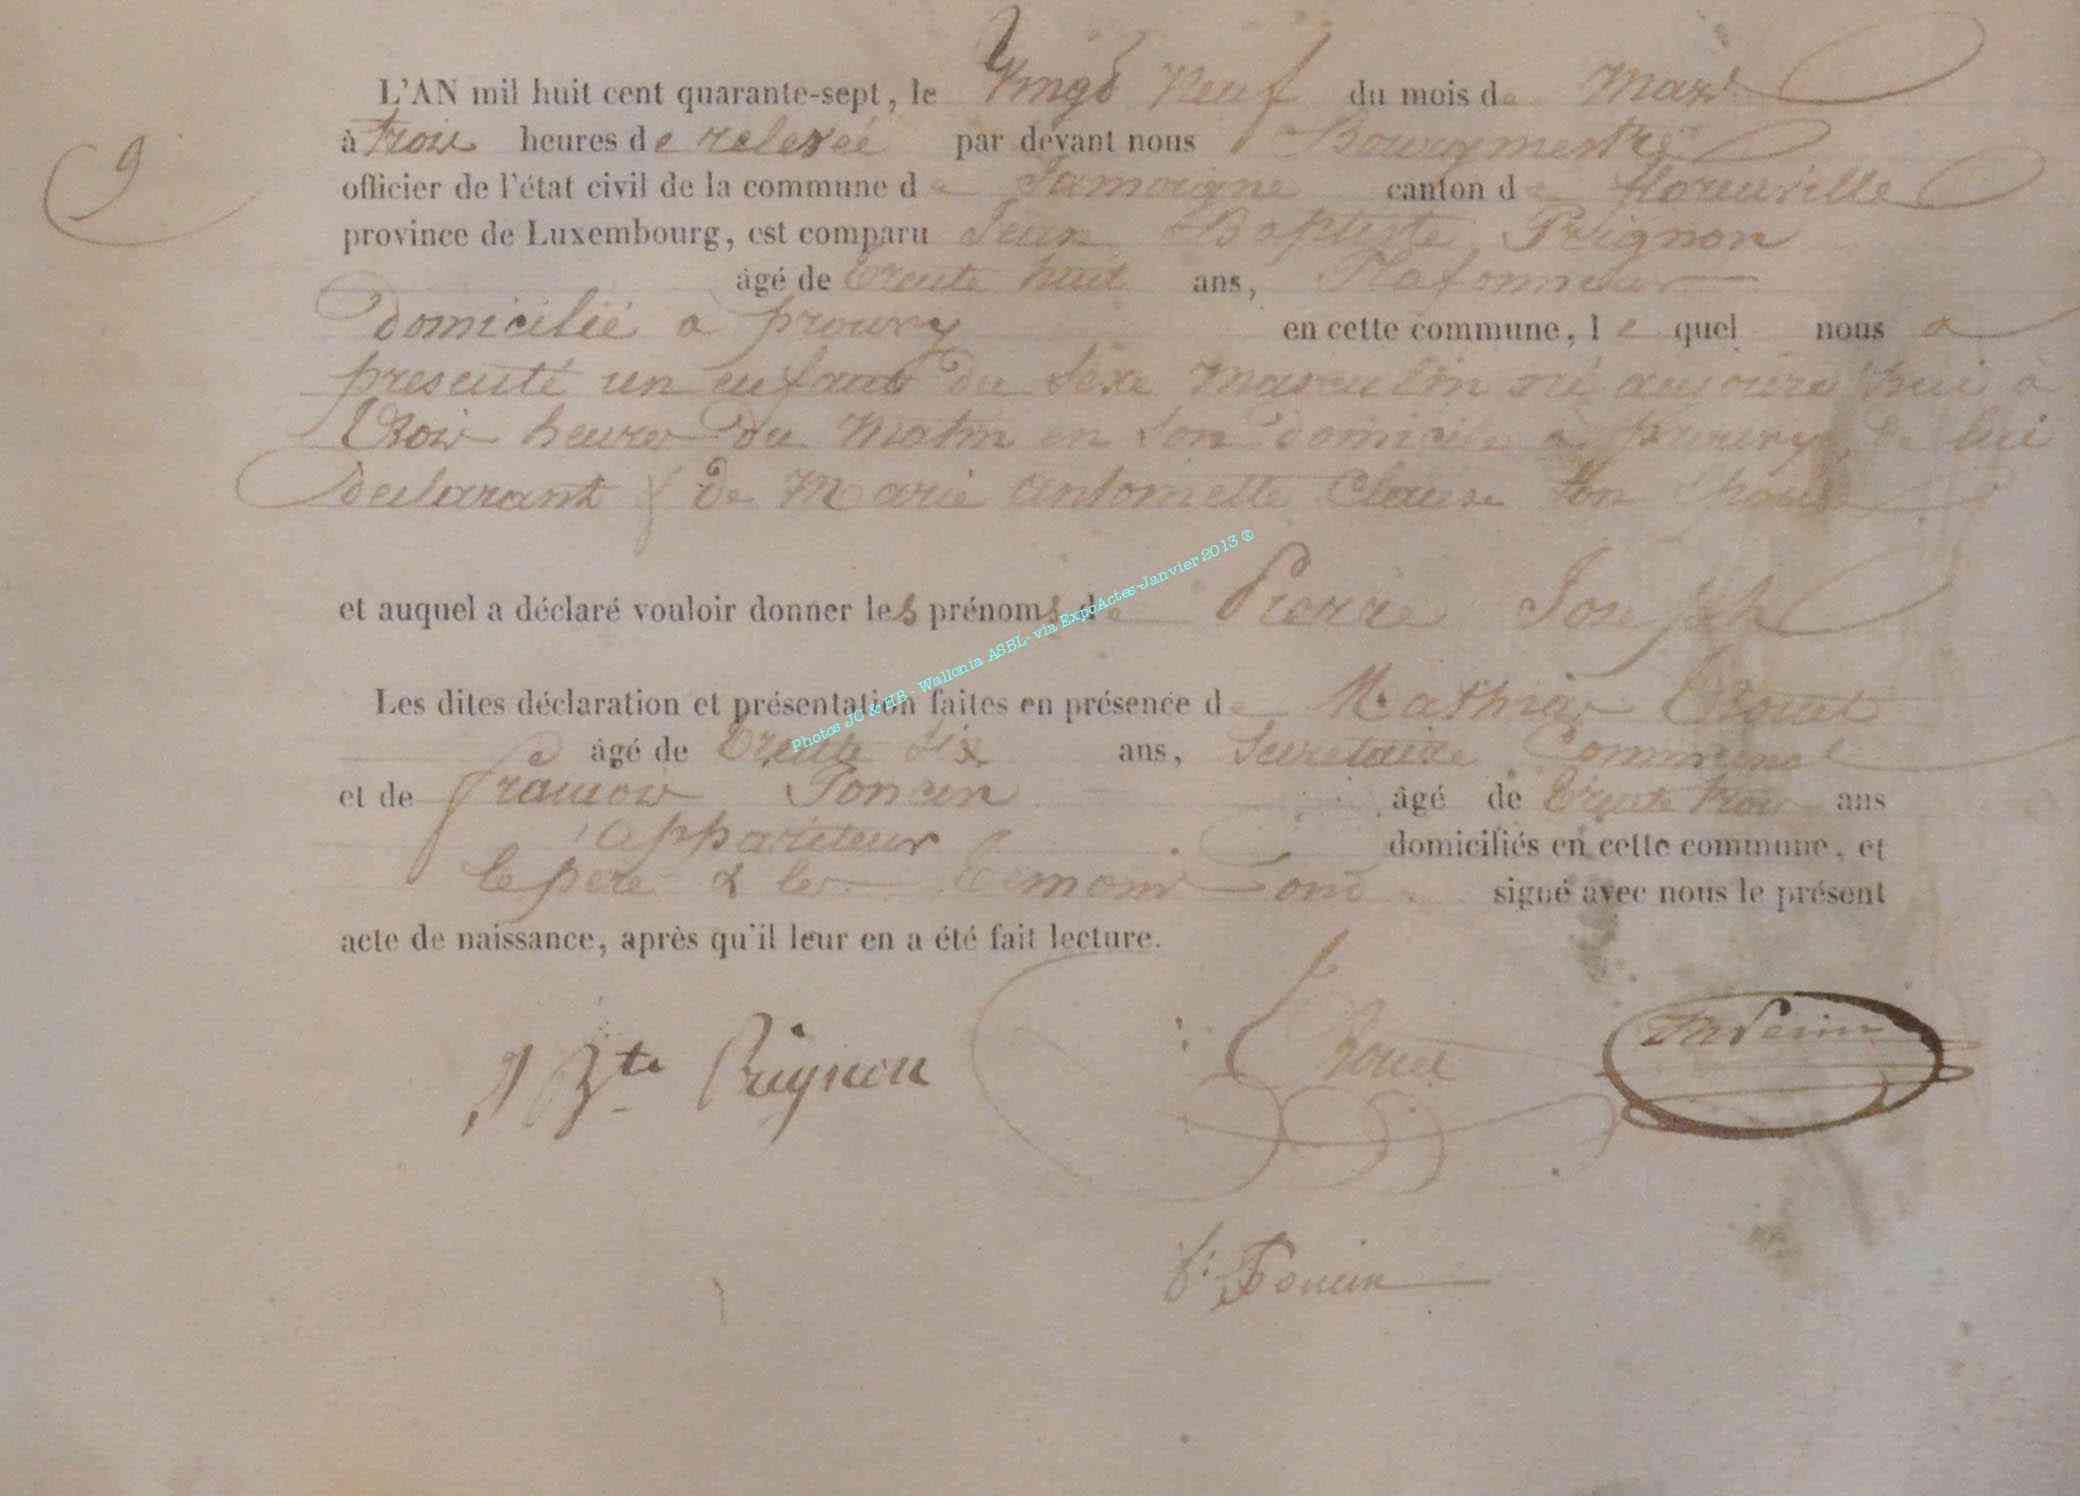 L'AN mil huit cent quarante-sept, le Vingt Neuf du mois de Mars
9
à trois heures de relevée par devant nous Bourgmestre
officier de l'état civil de la commune de Jamoigne canton de florenville
province de Luxembourg, est comparu Jean Baptiste Prignon
âgé de trente huit ans, Plafonneur
domicilié a prouvy en cette commune, le quel nous a
presenté un enfant du Sexe Masculin né aujourd'hui à
trois heures du Matin en Son domicile a prouvy, de lui
declarant & de Marie Antoinette Clausse Son Epouse
et auquel a déclaré vouloir donner les prénoms de Pierre Joseph
Les dites déclaration et présentation faites en présence de Mathias
âgé de trente Six ans, Secretaire Communal
et de françois Poncin âgé de trente trois ans
appariteur domiciliés en cette commune, et
le pere & les temoins ont signé avec nous le présent
acte de naissance, après qu'il leur en a été fait lecture.
J Bte Prignon
f: Poncin
Photos JC & HB - Wallonia ASBL- via ExpoActes-Janvier 2013 ®